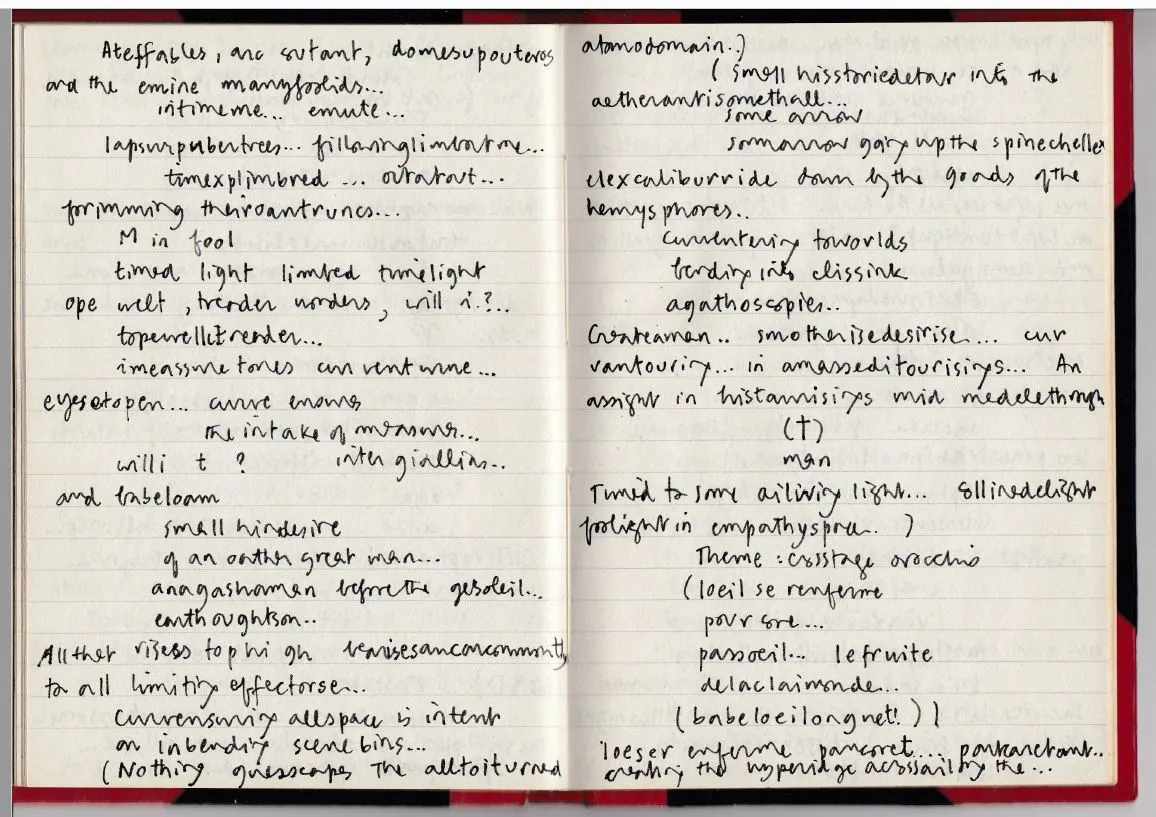 Ateffables, arc sutant, domesupouteros
and the emine manyfoolids...
intimeme... emute...
lapsurpubertrees... fillowinglimbortune...
timexplimbred ... outatout...
forimming theiroantruncs...
M in fool
timed light limbed timelight
ope welt, treader worders, will i.?...
topewelltreader...
imeassure tones current wine...
eyesetopen... curve ensures
the intake of measures...
will i t ?
and babeloam
small hindesire
of an oather great man...
anagashaman before the
earthoughtson..
All that risess tophigh
to all limiting effectorse...
allspace is intent
on inbending scene bins...
(Nothing the alltoiturned
atamodomain.)
(small hisstoriedetair into the
aetherantisomethall...
some arrow
somarrow going up the spinechelle
elexcaliburride down by the goads of the
hemysphores..
curventering toworlds
bending into elissink
agathoscopies..
Createaman.. smotherisedesirise... cur
vantouring... in amasseditourisings... An
assight in histamisings mid medelethough
(†)
man
Timed to some ailiving light... ollinedelight
foolight in
Theme : crisstage orocchio
(loeil se renferme
pour sre...
passoeil... lefruite
delaclaimonde..
(babeloeilongnet! ))
loeser enferme pancoret... parkanchant..
creating the hyperidge acrossail by the...